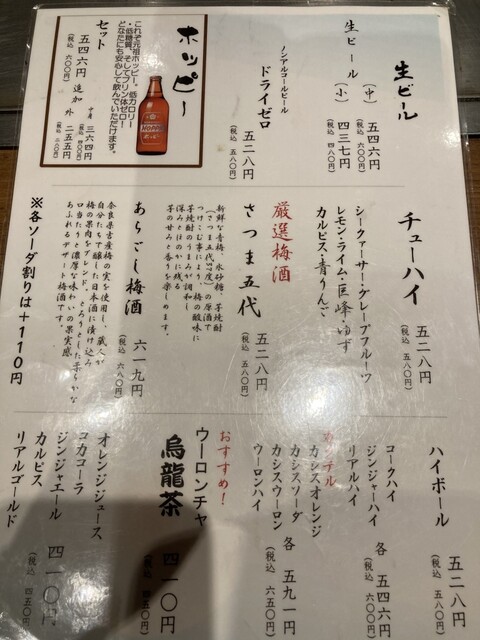 生ビール
生ビール
(中) 五四六円
(税込 六〇〇円)
(小) 四三七円
(税込 四八〇円)
ノンアルコールビール
ドライゼロ
五二八円
(税込 五八〇円)
ホッピー
これぞ元祖ホッピー。低カロリー
・低糖質、そしてプリン体ゼロ!
どなたにも安心して飲んでいただけます。
セット
五四六円
(税込 六〇〇円)
追加
中身 三六四円
外 二五五円
チューハイ
五二八円
(税込 五八〇円)
シークァーサー・グレープフルーツ
レモン・ライム・巨峰・ゆず
カルピス・青りんご
厳選梅酒
さつま五代
五二八円
(税込 五八〇円)
新鮮な青梅、氷砂糖、芋焼酎
の原酒で
つけこむ事により、梅の酸味に
芋焼酎のうまみが調和し
深みとほのかに残る
芋の甘みと香りを楽しめます。
あらごし梅酒
六一九円
(税込 六八〇円)
奈良県吉野産梅の実を使用し、蔵人が
自分たちで醸した日本酒に漬け込み
梅の果肉をブレンド。とろりとした柔らかな
口当たりと濃厚な味わいの果実感
あふれるデザート梅酒です。
※各ソーダ割りは+110円
ハイボール
五二八円
(税込 五八〇円)
コークハイ
ジンジャーハイ
リアルハイ
各 五四六円
(税込 六〇〇円)
カクテル
カシスオレンジ
カシスソーダ
カシスウーロン
ウーロンハイ
各 五九一円
(税込 六五〇円)
おすすめ!
ウーロンチャ
烏龍茶
四一〇円
(税込 四五〇円)
オレンジジュース
コカコーラ
ジンジャエール
カルピス
リアルゴールド
四一〇円
(税込 四五〇円)